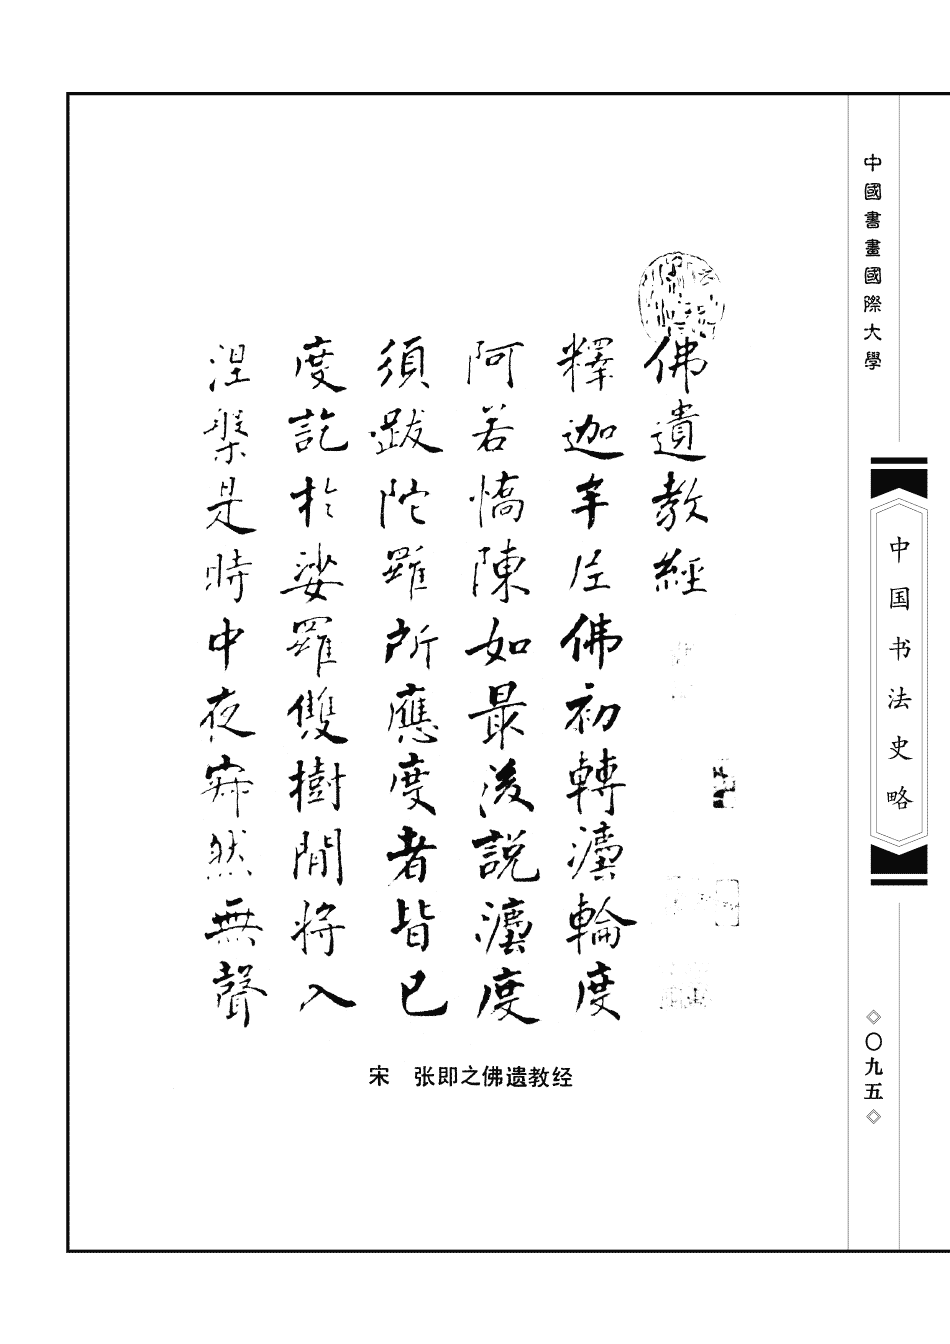 佛遺教經
釋迦牟尼佛初轉灋輪度
阿若憍陳如最後說灋度
須跋陀羅所應度者皆已
度訖於娑羅雙樹間將入
涅槃是時中夜寂然無聲
宋　张即之佛遗教经
中國書畫國際大學
中国书法史略
◇〇九五◇